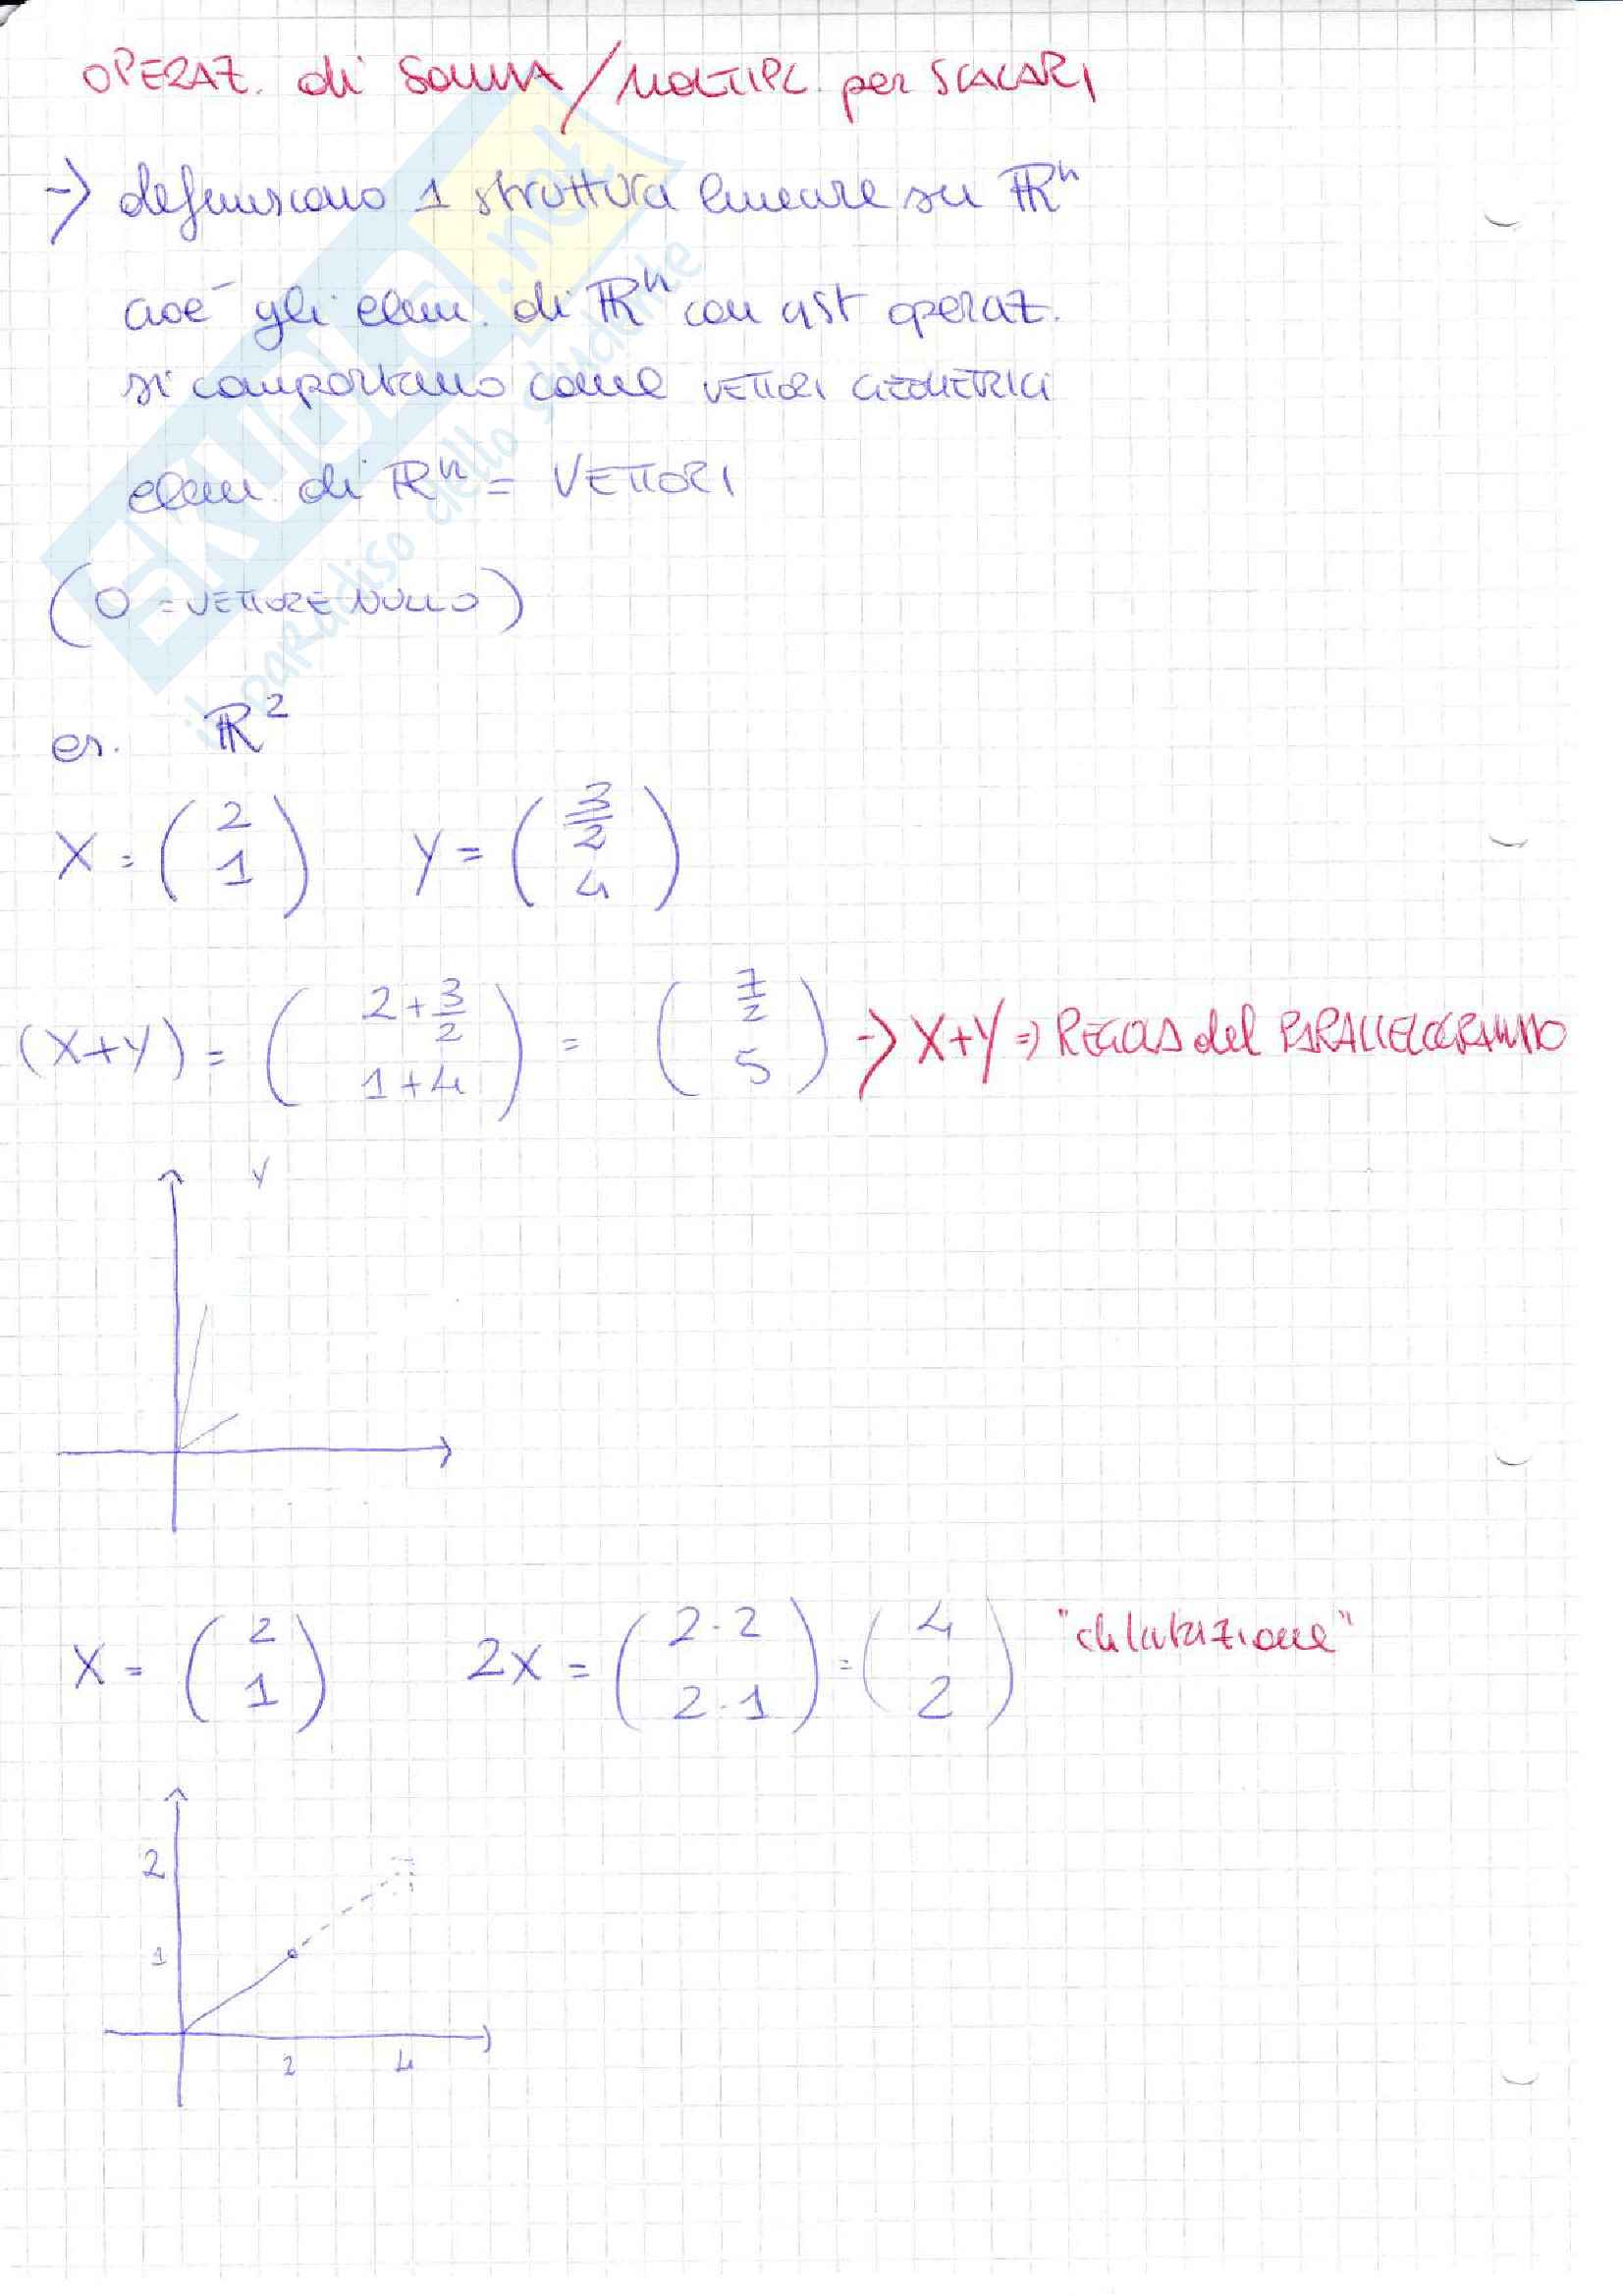 OPERAZ. di SOMMA / MOLTIPL. per SCALARI
-> definiscono 1 struttura lineare su ℝⁿ
cioè gli elem. di ℝⁿ con qst operaz.
si comportano come VETTORI GEOMETRICI
elem. di ℝⁿ = VETTORI
(0 = VETTORE NULLO)
es. ℝ²
X = (2 1) Y = (3/2 4)
(X+Y) = (2+3/2 1+4) = (7/2 5) -> X+Y => REGOLA del PARALLELOGRAMMO
Y
X = (2 1) 2X = (2·2 2·1) = (4 2) "dilatazione"
2
1
2 4
SKUOLA.net
il paradiso dello studente